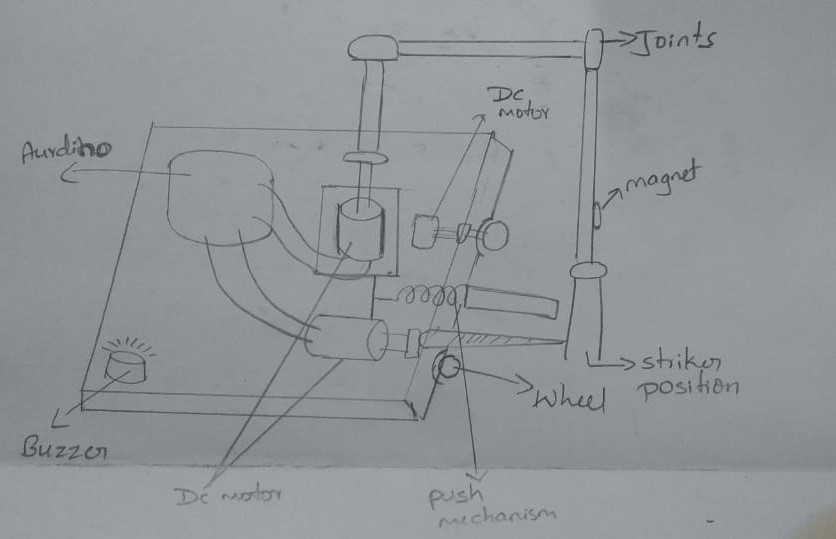 Joints
Dc
motor
Aurdino
magnet
striker
position
Wheel
Buzzer
Dc motor
push
mechanism